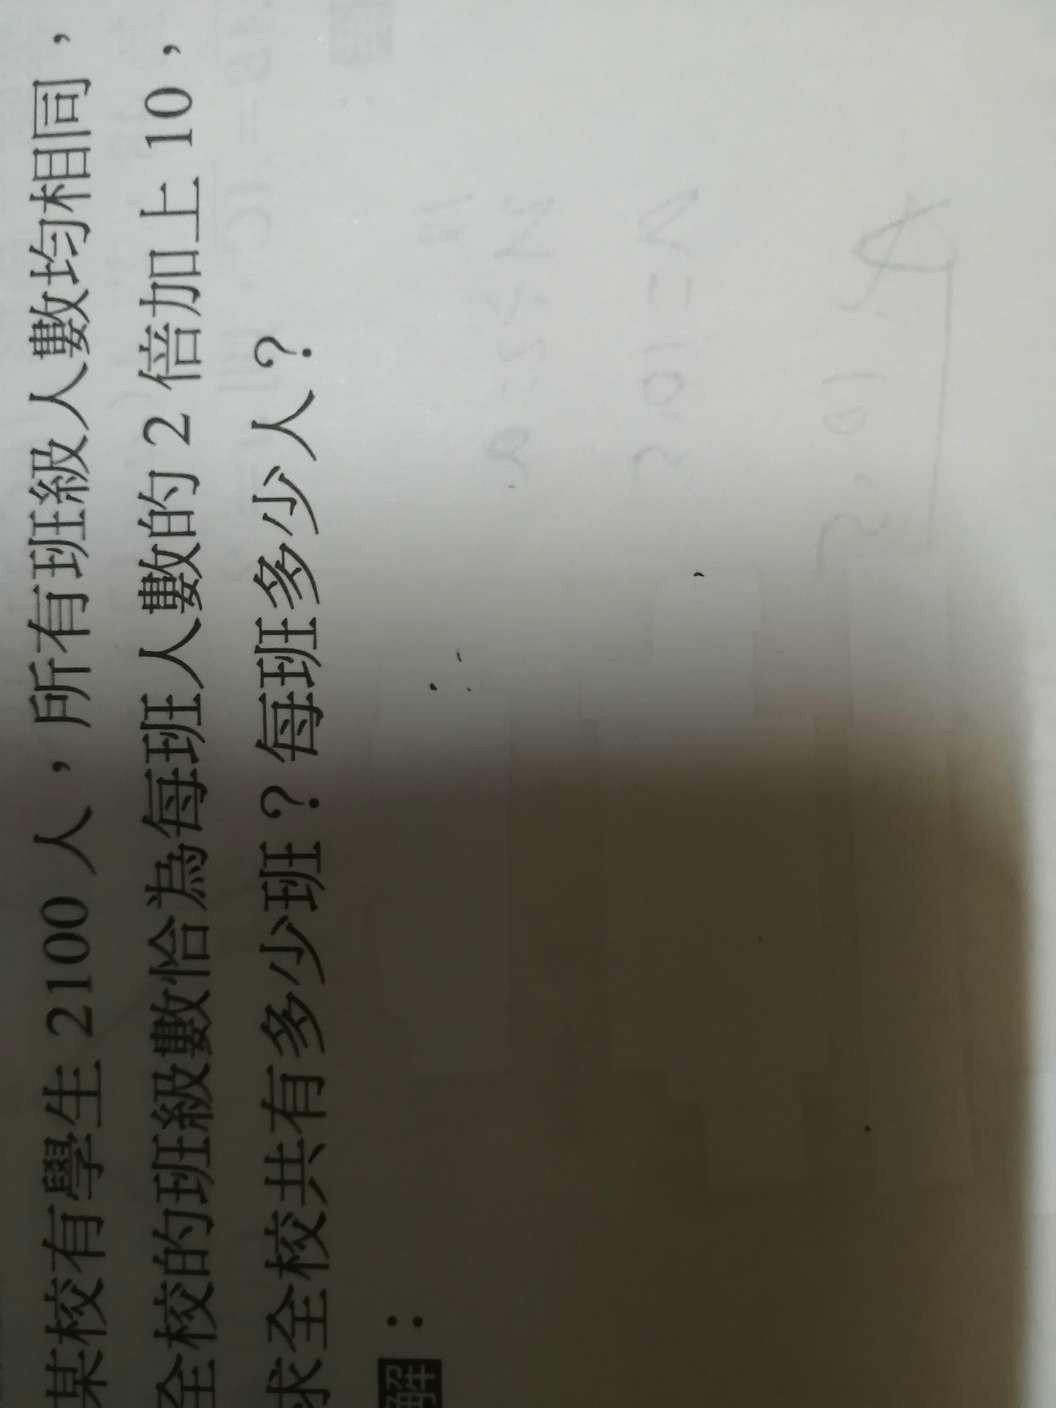 某校有學生 2100 人，所有班級人數均相同，
全校的班級數恰為每班人數的 2 倍加上 10，
求全校共有多少班？每班多少人？
解：